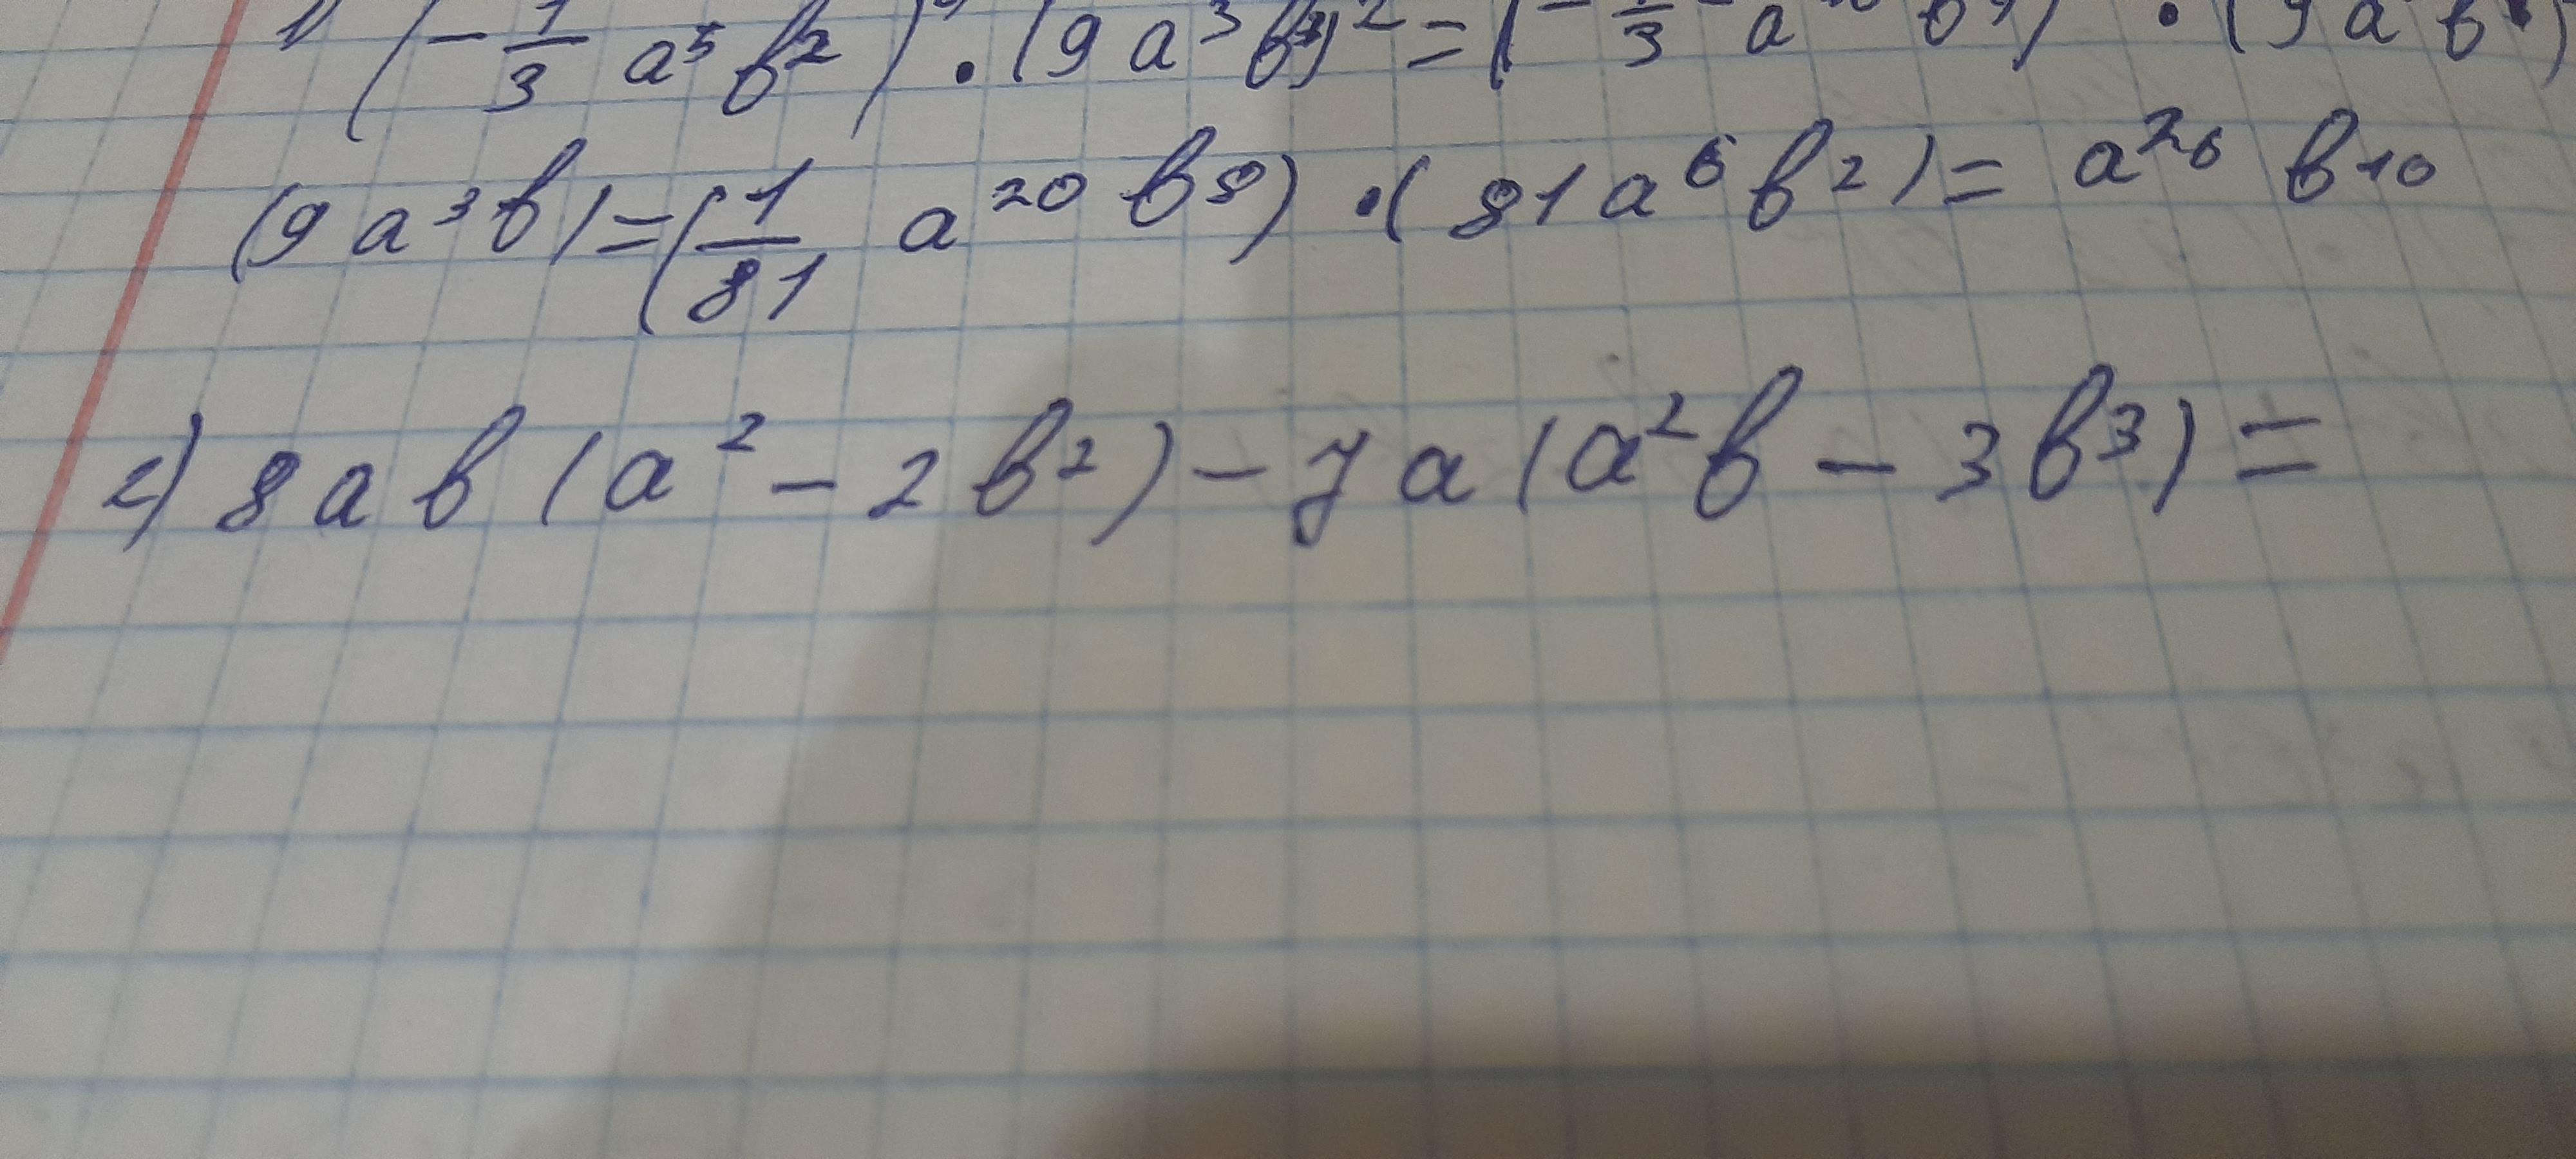 1) (-1/3 a⁵ b²) · (9 a³ b)² = (-1/3 a b) · (9 a b)
(9 a³ b) = (1/81 a²⁰ b⁸) · (81 a⁶ b²) = a²⁶ b¹⁰
2) 8 a b (a² - 2 b²) - 7 a (a² b - 3 b³) =